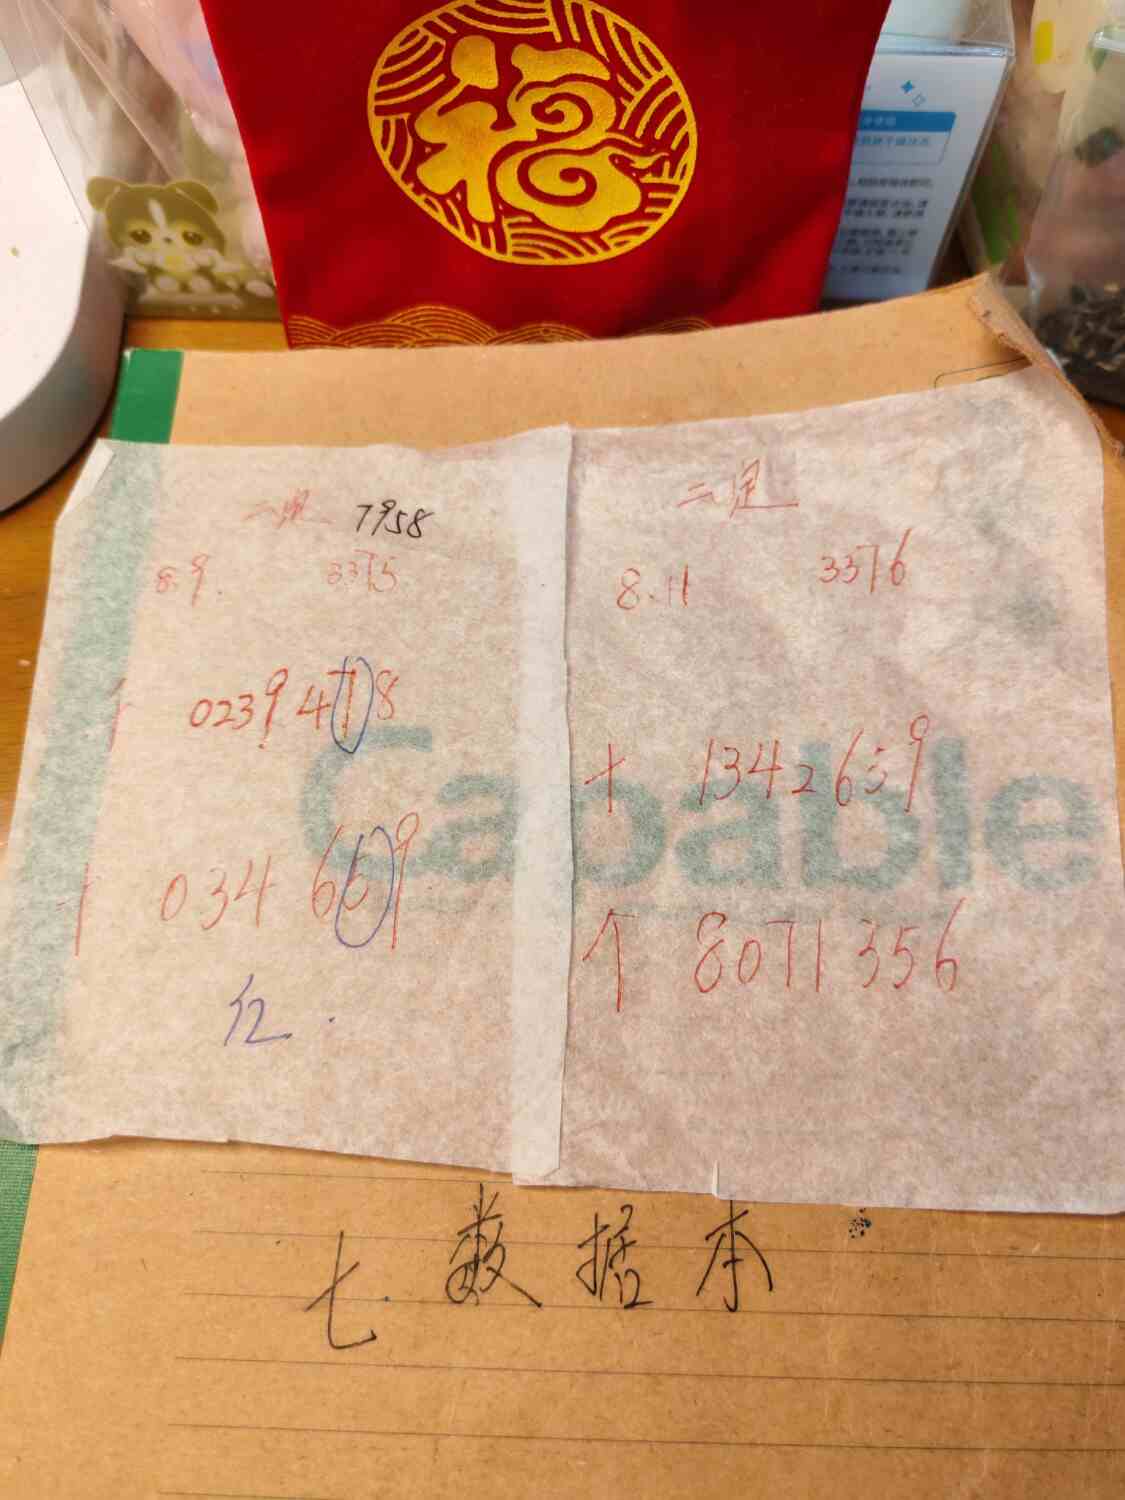 福
二定 7958
8.9 3375
0239478
034659
红.
二定
8.11 3376
十 1342659
个 8071356
Capable
七.数据本